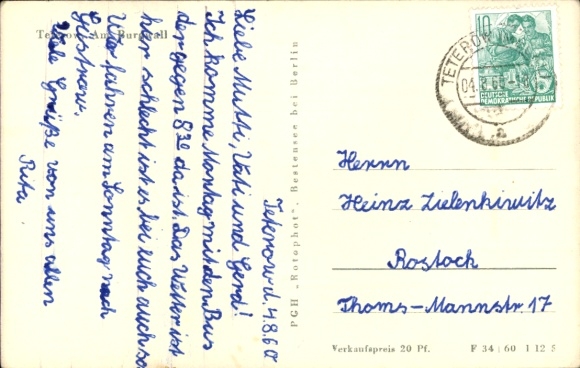 Teterow, Am Burgwall
Teterow d. 4.8.60
Liebe Mutti, Vati und Gerd!
Ich komme Montag mit dem Bus
der gegen 8³⁰ da ist. Das Wetter ist
hier schlecht ist es bei Euch auch so
Wir fuhren am Sonntag nach
Güstrow.
Viele Grüße von uns allen
Rita
PGH „Rotophot", Bestensee bei Berlin
10
DEUTSCHE
DEMOKRATISCHE REPUBLIK
TETEROW
04.8.60
a
Herrn
Heinz Zielenkiwitz
Rostock
Thoms-Mannstr. 17
Verkaufspreis 20 Pf.
F 34 | 60 1 12 S